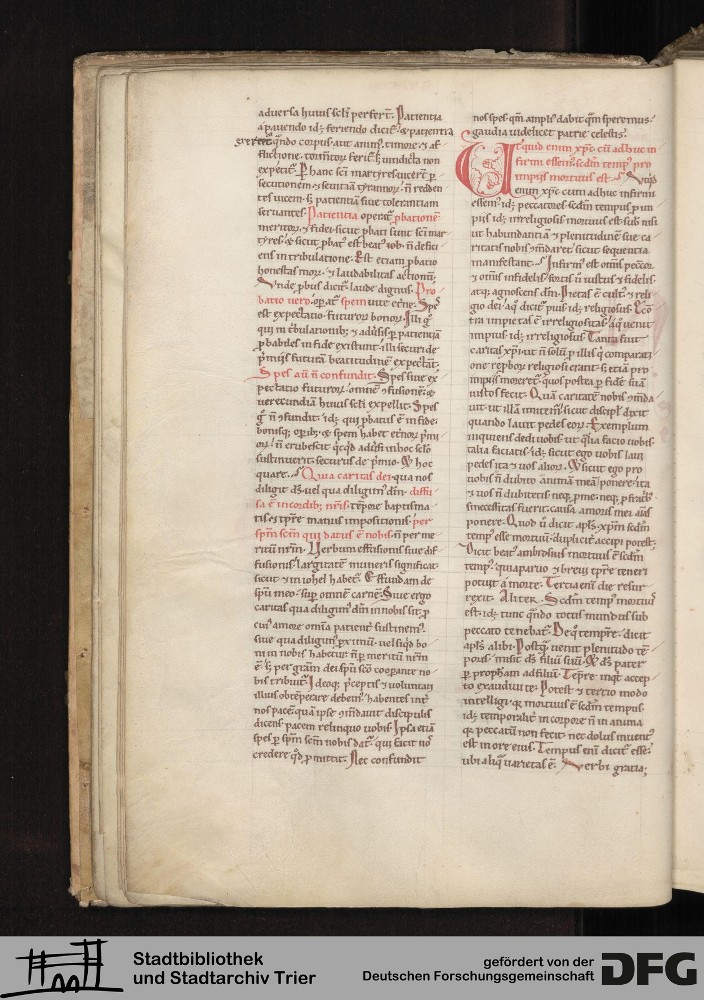 aduersa huius scłi perfert. Patientia
a pauendo id; feriendo dicit &patientia
exercet qndo corpus aut anim timore & af
flictione
expectat. P hanc sci martyres uicer p
secutionem & seuitiā tyrannor n redden
tes uicem. s; patientiā siue tolerantiam
seruantes. Patientia operat pbationē
meritor & fidei sicut pbati sunt sci mar
tyres & sicut pbat est beat iob n defici
ens in tribulatione. Est etiam pbatio
honestas mor & laudabilitas actionū;
Vnde pbus dicit laude dignus. Pro
batio uero opat spem uite etne. Spes
est expectatio futuror bonor. Illi g
qui in tbulationib; & adusis p patientiā
p babiles in fide existunt illi securi de
pmijs futurā beatitudinē expectāt.
Spes aū n confundit. Spes siue ex
pectatio futuror omnē 9fusionē &
uerecundiam huius scłi expellit. Spes
g n 9fundit id; qui pbatus ē in fide
bonisq; opib; & spem habet etnor pmi
or n erubescit qcqd adusi in hoc sclo
sustinuerit securus de pmio. & hoc
quare. Quia caritas dei qua nos
diligit ds uel qua diligim dm diffu
sa ē in cordib; nris tēpore baptisma
tis & tpre manus impositionis per
spm scm qui datus ē nobis n per me
ritū nrm. Verbum effusionis siue dif
fusionis largitatē muneris significat
sicut & in iohel habet. Effundam de
spu meo sup omnē carnē. Siue ergo
caritas qua diligim dm in nobis sit p
cui amore omnia patient sustinem
siue qua diligim pximū uel siqd bo
ni in nobis habetur n p meritū nrm
ē s; per gram dei spu sco cooperante no
bis tribuit. Ideoq; pceptis & voluntati
illius obtēperare debem habentes int
nos pacē quā ipse 9mdauit discipulis
dicens pacem relinquo uobis. Ipsa etiā
spes p spm scm nobis dat qui facit nos
credere qd pmittit. Nec confundit
nos spes qm ampli dabit qm speremus
gaudia uidelicet patrie celestis.
Vt quid enim xps cū adhuc in
firmi essem scdm temp pro
impijs mortuus est. Vtqd
enim xpc cum adhuc infirmi
essem id; peccatores scdm tempus p im
pijs id; irreligiosis mortuus est sub nisi
ut habundantiā & plenitudinē sue ca
ritatis nobis 9mdaret sicut sequentia
manifestant. Infirm est omis peccor
& omis infidelis fortis u iustus & fidelis
atq; agnoscens dm. Pietas ē cult & reli
gio dei a q dicit pius id; religiosus. Ecō
tra impietas ē irreligiositas a q uenit
impius id; irreligiosus. Tanta fuit
caritas xpi ut n solū p illis q comparati
one rephor religiosi erant s; etiā pro
impijs moreret quos postea p fidē suā
iustos fecit. Quā caritatē nobis 9mda
uit ut illā imitem sicut discipl dixit
quando lauit pedes eor. Exemplum
inquiens dedi uobis ut qlia facio uobis
talia faciatis id; sicut ego uobis laui
pedes ita & uos alior. & sicut ego pro
uobis n dubito animā meā ponere ita
& uos n dubitetis neq; pme neq; p frib
si necessitas fuerit causa amoris mei aīas
ponere. Quod ū dicit apls xpm scdm
temp esse mortuū dupliciter accipi potest.
Dicit beat ambrosius mortuus ē scdm
temp quia paruo & breui tpre teneri
potuit a morte. Tercia eni die resur
rexit. Aliter. Scdm temp mortuus
est id; tunc qndo totus mundus sub
peccato tenebat. De q tempre dicit
apls alibi. Postq uenit plenitudo tē
poris misit ds filiū suū. & ds pater
p prophetam ad filiū. Tēpre inqt accep
to exaudiui te. Potest & tercio modo
intelligi qr mortuus ē scdm tempus
id; temporalit in corpore n in anima
qr peccatū non fecit nec dolus inuent
est in ore eius. Tempus eni dicit esse
ubi aliq uarietas ē. Verbi gratia;
Stadtbibliothek
und Stadtarchiv Trier
gefördert von der
Deutschen Forschungsgemeinschaft
DFG